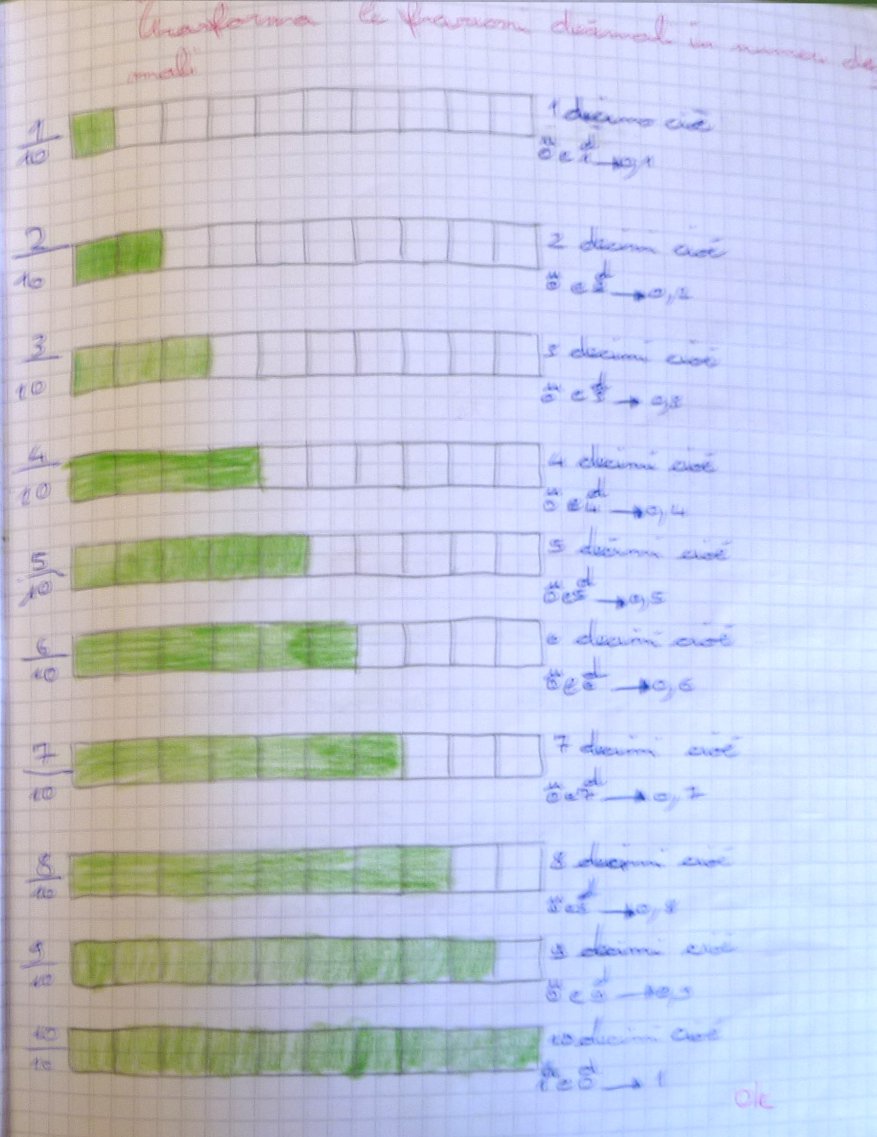 Trasforma le frazioni decimali in numeri deci
mali
1/10 1 decimo cioè
u d
0 e 1 → 0,1
2/10 2 decimi cioè
u d
0 e 2 → 0,2
3/10 3 decimi cioè
u d
0 e 3 → 0,3
4/10 4 decimi cioè
u d
0 e 4 → 0,4
5/10 5 decimi cioè
u d
0 e 5 → 0,5
6/10 6 decimi cioè
u d
0 e 6 → 0,6
7/10 7 decimi cioè
u d
0 e 7 → 0,7
8/10 8 decimi cioè
u d
0 e 8 → 0,8
9/10 9 decimi cioè
u d
0 e 9 → 0,9
10/10 10 decimi cioè
u d
1 e 0 → 1
Ok